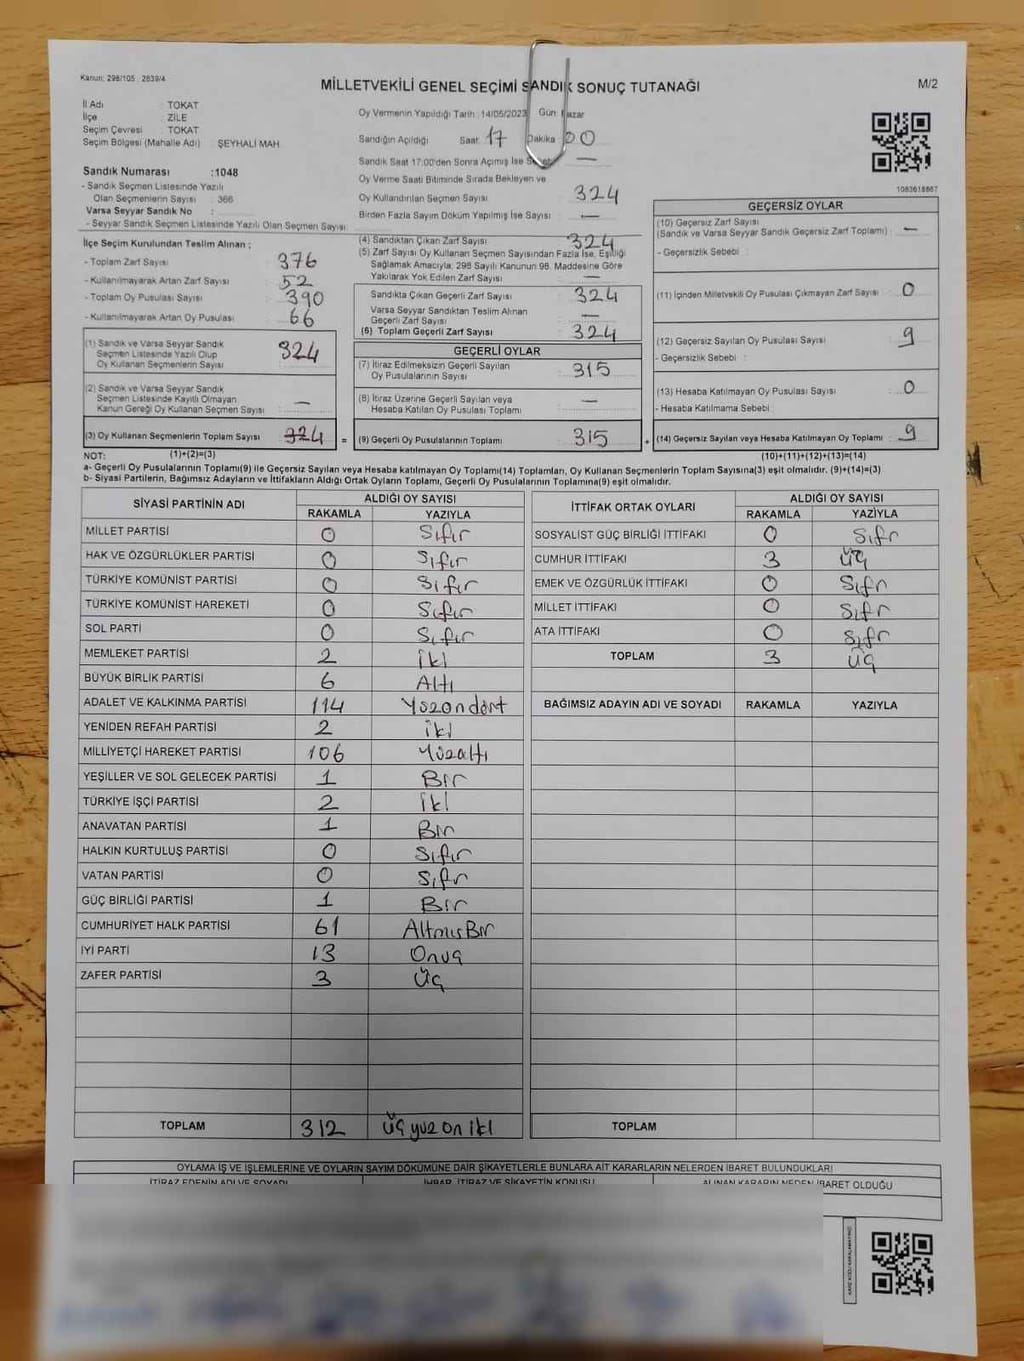 Kanun: 298/105 2839/4
MİLLETVEKİLİ GENEL SEÇİMİ SANDIK SONUÇ TUTANAĞI
M/2
İl Adı : TOKAT
İlçe : ZİLE
Seçim Çevresi : TOKAT
Seçim Bölgesi (Mahalle Adı) : ŞEYHALİ MAH
Sandık Numarası : 1048
- Sandık Seçmen Listesinde Yazılı
Olan Seçmenlerin Sayısı : 366
Varsa Seyyar Sandık No :
- Seyyar Sandık Seçmen Listesinde Yazılı Olan Seçmen Sayısı:
Oy Vermenin Yapıldığı Tarih : 14/05/2023 Gün: Pazar
Sandığın Açıldığı Saat 17 Dakika 00
Sandık Saat 17:00'den Sonra Açımış İse —
Oy Verme Saati Bitiminde Sırada Bekleyen ve
Oy Kullandırılan Seçmen Sayısı 324
Birden Fazla Sayım Döküm Yapılmış İse Sayısı —
1083618867
İlçe Seçim Kurulundan Teslim Alınan ;
- Toplam Zarf Sayısı 376
- Kullanılmayarak Artan Zarf Sayısı 52
- Toplam Oy Pusulası Sayısı 390
- Kullanılmayarak Artan Oy Pusulası 66
(1) Sandık ve Varsa Seyyar Sandık
Seçmen Listesinde Yazılı Olup
Oy Kullanan Seçmenlerin Sayısı 324
(2) Sandık ve Varsa Seyyar Sandık
Seçmen Listesinde Kayıtlı Olmayan
Kanun Gereği Oy Kullanan Seçmen Sayısı —
(3) Oy Kullanan Seçmenlerin Toplam Sayısı 324 =
(4) Sandıktan Çıkan Zarf Sayısı 324
(5) Zarf Sayısı Oy Kullanan Seçmen Sayısından Fazla İse, Eşitliği
Sağlamak Amacıyla; 298 Sayılı Kanunun 98. Maddesine Göre
Yakılarak Yok Edilen Zarf Sayısı —
Sandıkta Çıkan Geçerli Zarf Sayısı 324
Varsa Seyyar Sandıktan Teslim Alınan
Geçerli Zarf Sayısı —
(6) Toplam Geçerli Zarf Sayısı 324
GEÇERLİ OYLAR
(7) İtiraz Edilmeksizin Geçerli Sayılan
Oy Pusulalarının Sayısı 315
(8) İtiraz Üzerine Geçerli Sayılan veya
Hesaba Katılan Oy Pusulası Toplamı —
(9) Geçerli Oy Pusulalarının Toplamı 315 +
GEÇERSİZ OYLAR
(10) Geçersiz Zarf Sayısı
(Sandık ve Varsa Seyyar Sandık Geçersiz Zarf Toplamı) : —
- Geçersizlik Sebebi :
(11) İçinden Milletvekili Oy Pusulası Çıkmayan Zarf Sayısı : 0
(12) Geçersiz Sayılan Oy Pusulası Sayısı : 9
- Geçersizlik Sebebi :
(13) Hesaba Katılmayan Oy Pusulası Sayısı : 0
- Hesaba Katılmama Sebebi :
(14) Geçersiz Sayılan veya Hesaba Katılmayan Oy Toplamı : 9
NOT: (1)+(2)=(3) (10)+(11)+(12)+(13)=(14)
a- Geçerli Oy Pusulalarının Toplamı(9) ile Geçersiz Sayılan veya Hesaba katılmayan Oy Toplamı(14) Toplamları, Oy Kullanan Seçmenlerin Toplam Sayısına(3) eşit olmalıdır. (9)+(14)=(3)
b- Siyasi Partilerin, Bağımsız Adayların ve İttifakların Aldığı Ortak Oyların Toplamı, Geçerli Oy Pusulalarının Toplamına(9) eşit olmalıdır.
SİYASİ PARTİNİN ADI ALDIĞI OY SAYISI
RAKAMLA YAZIYLA
MİLLET PARTİSİ 0 Sıfır
HAK VE ÖZGÜRLÜKLER PARTİSİ 0 Sıfır
TÜRKİYE KOMÜNİST PARTİSİ 0 Sıfır
TÜRKİYE KOMÜNİST HAREKETİ 0 Sıfır
SOL PARTİ 0 Sıfır
MEMLEKET PARTİSİ 2 iki
BÜYÜK BİRLİK PARTİSİ 6 Altı
ADALET VE KALKINMA PARTİSİ 114 Yüzondört
YENİDEN REFAH PARTİSİ 2 iki
MİLLİYETÇİ HAREKET PARTİSİ 106 Yüzaltı
YEŞİLLER VE SOL GELECEK PARTİSİ 1 Bir
TÜRKİYE İŞÇİ PARTİSİ 2 iki
ANAVATAN PARTİSİ 1 Bir
HALKIN KURTULUŞ PARTİSİ 0 Sıfır
VATAN PARTİSİ 0 Sıfır
GÜÇ BİRLİĞİ PARTİSİ 1 Bir
CUMHURİYET HALK PARTİSİ 61 AltmışBir
İYİ PARTİ 13 Onüç
ZAFER PARTİSİ 3 üç
TOPLAM 312 üç yüz on iki
İTTİFAK ORTAK OYLARI ALDIĞI OY SAYISI
RAKAMLA YAZIYLA
SOSYALİST GÜÇ BİRLİĞİ İTTİFAKI 0 Sıfır
CUMHUR İTTİFAKI 3 üç
EMEK VE ÖZGÜRLÜK İTTİFAKI 0 Sıfır
MİLLET İTTİFAKI 0 Sıfır
ATA İTTİFAKI 0 Sıfır
TOPLAM 3 üç
BAĞIMSIZ ADAYIN ADI VE SOYADI RAKAMLA YAZIYLA
TOPLAM
OYLAMA İŞ VE İŞLEMLERİNE VE OYLARIN SAYIM DÖKÜMÜNE DAİR ŞİKAYETLERLE BUNLARA AİT KARARLARIN NELERDEN İBARET BULUNDUKLARI
İTİRAZ EDENİN ADI VE SOYADI İHBAR, İTİRAZ VE ŞİKAYETİN KONUSU ALINAN KARARIN NEDEN İBARET OLDUĞU